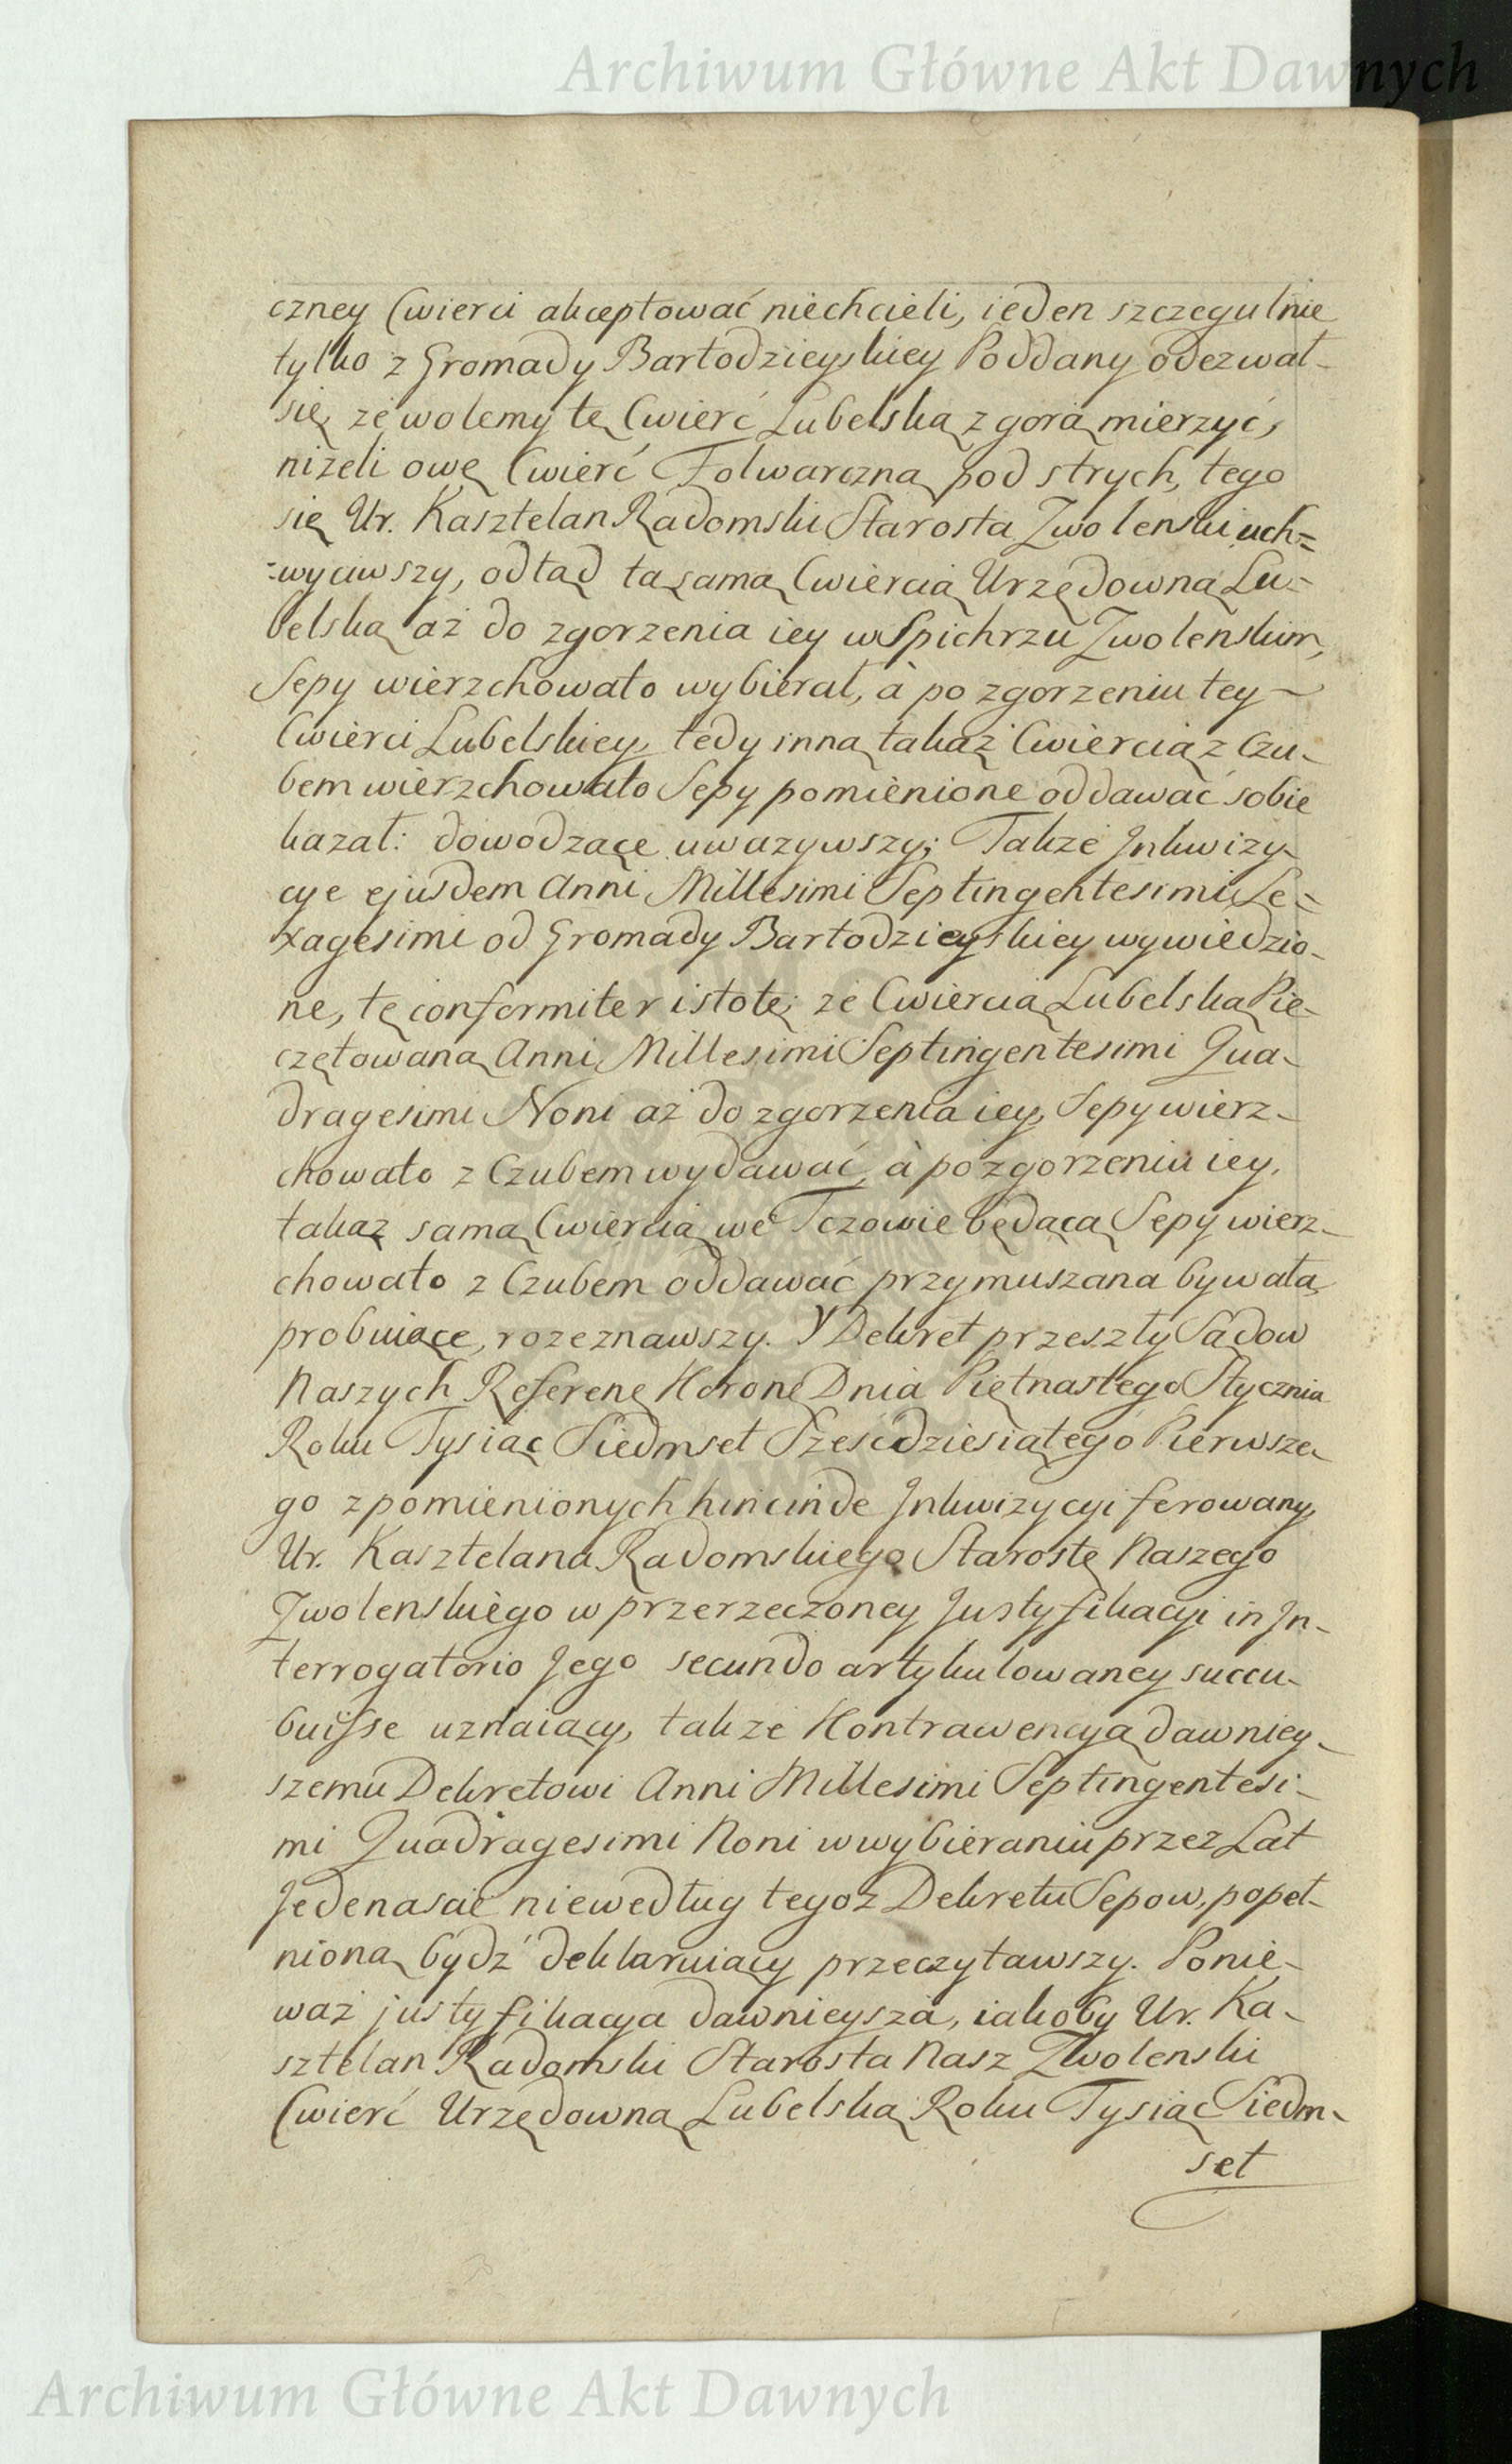 Archiwum Główne Akt Dawnych
czney Cwierci akceptować niechcieli, ieden szczegulnie
tylko z Gromady Bartodzieyskiey Poddany odezwał-
się, że wolemy tę Cwierć Lubelską z gorą mierzyć,
niżeli owę Cwierć Folwarczną pod strych, tego
się Ur. Kasztelan Radomski Starosta Zwolenski uch=
-wyciwszy, odtąd tą samą Cwiercią Urzędowną Lu-
belską aż do zgorzenia iey w Spichrzu Zwolenskim,
Sepy wierzchowato wybierał, à po zgorzeniu tey ~
Cwierci Lubelskiey, tedy inną takąż Cwiercią z Czu-
bem wierzchowato Sepy pomienione oddawać sobie
kazał: dowodzące uwazywszy; Także Jnkwizy-
cye ejusdem Anni Millesimi Septingentesimi Se=
xagesimi od Gromady Bartodzieyskiey wywiedzio-
ne, tę conformiter istotę; że Cwiercią Lubelską Pie-
czętowaną Anni Millesimi Septingentesimi Qua-
dragesimi Noni aż do zgorzenia iey, Sepy wierz-
chowato z Czubem wydawać, à po zgorzeniu iey,
takąż samą Cwiercią we Tczowie będącą Sepy wierz-
chowato z Czubem oddawać przymuszana bywała,
probuiące, rozeznawszy. Y Dekret przeszły Sądow
Naszych Referen: Koron: Dnia Piętnastego Stycznia
Roku Tysiąc Siedmset Szescdziesiątego Pierwsze-
go z pomienionych hincinde Jnkwizycyi ferowany,
Ur. Kasztelana Radomskiego Starostę Naszego
Zwolenskiego w przerzeczoney Justyfikacyi in Jn-
terrogatorio Jego secundo artykulowaney succu-
buisse uznaiący, także Kontrawencyą dawniey-
szemu Dekretowi Anni Millesimi Septingentesi-
mi Quadragesimi Noni w wybieraniu przez Lat
Jedenascie niewedług tegoż Dekretu Sepow, popeł-
nioną bydź deklaruiący przeczytawszy. Ponie-
waż justyfikacya dawnieysza, iakoby Ur. Ka-
sztelan Radomski Starosta Nasz Zwolenski
Cwierć Urzędowną Lubelską Roku Tysiąc Siedm-
set
Archiwum Główne Akt Dawnych